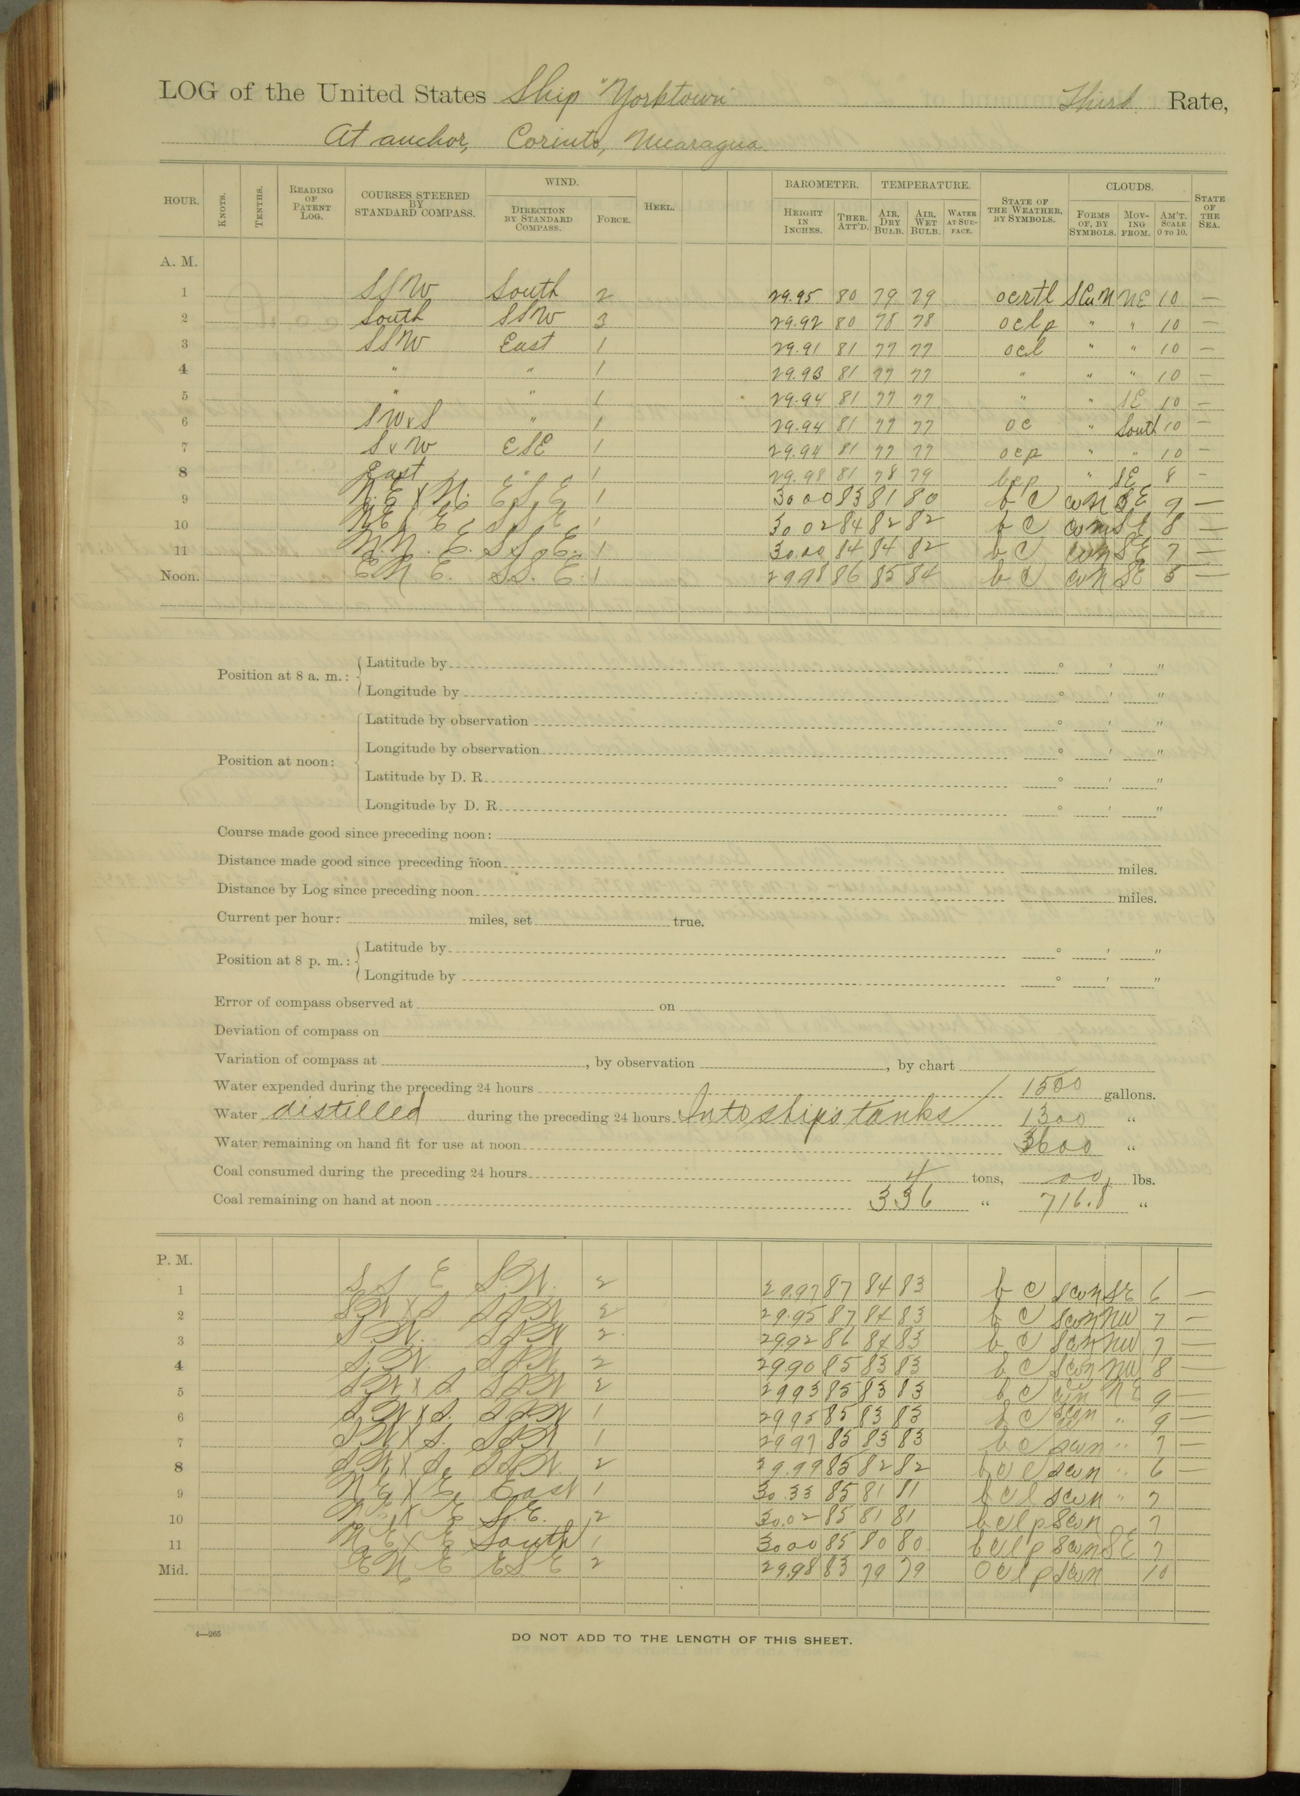 LOG of the United States Ship "Yorktown" Third Rate,
At anchor, Corinto, Nicaragua
HOUR. KNOTS. TENTHS. READING OF PATENT LOG. COURSES STEERED BY STANDARD COMPASS. WIND. DIRECTION BY STANDARD COMPASS. FORCE. HEEL. BAROMETER. HEIGHT IN INCHES. THER. ATT'D. TEMPERATURE. AIR, DRY BULB. AIR, WET BULB. WATER AT SURFACE. STATE OF THE WEATHER, BY SYMBOLS. CLOUDS. FORMS OF, BY SYMBOLS. MOVING FROM. AM'T. SCALE 0 TO 10. STATE OF THE SEA.
A. M.
1 SSW South 2 29.95 80 79 79 ocrtl SCuN NE 10 —
2 South SSW 3 29.92 80 78 78 oclp " " 10 —
3 SSW East 1 29.91 81 77 77 ocl " " 10 —
4 " " 1 29.93 81 77 77 " " " 10 —
5 " " 1 29.94 81 77 77 " " SE 10 —
6 SWxS " 1 29.94 81 77 77 oc " South 10 —
7 SxW ESE 1 29.94 81 77 77 ocp " " 10 —
8 East " 1 29.98 81 78 79 bcp " SE 8 —
9 N.E x N. E S E 1 30.00 83 81 80 b c cuN SE 9 —
10 NE x E. S S E 1 30.02 84 82 82 b c cuN SE 8 —
11 N.N.E. SSE. 1 30.00 84 84 82 b c cuN SE 7 —
Noon. E N E. S.S.E. 1 29.98 86 85 84 b c cuN SE 5 —
Position at 8 a. m.: Latitude by ° ' "
Longitude by ° ' "
Position at noon: Latitude by observation ° ' "
Longitude by observation ° ' "
Latitude by D. R. ° ' "
Longitude by D. R. ° ' "
Course made good since preceding noon:
Distance made good since preceding noon miles.
Distance by Log since preceding noon miles.
Current per hour: miles, set true.
Position at 8 p. m.: Latitude by ° ' "
Longitude by ° ' "
Error of compass observed at on
Deviation of compass on
Variation of compass at , by observation , by chart
Water expended during the preceding 24 hours 1500 gallons.
Water distilled during the preceding 24 hours Into ships tanks 1300 "
Water remaining on hand fit for use at noon 3600 "
Coal consumed during the preceding 24 hours 4 tons, 00, lbs.
Coal remaining on hand at noon 336 " 716.8 "
P. M.
1 S S E S.W. 2 29.97 87 84 83 b c scun SE 6 —
2 SW x S SSW 2 29.95 87 84 83 b c scun NW 7 —
3 S.W. SSW 2 29.92 86 84 83 b c scun NW 7 —
4 S.W. SSW 2 29.90 85 83 83 b c scun NW 8 —
5 SW x S. SSW 2 29.93 85 83 83 b c NE 9 —
6 S.W x S. SSW 1 29.95 85 83 83 b c " 9 —
7 SW x S. SSW 1 29.97 85 83 83 b c scun " 7 —
8 SW x S. SSW 2 29.99 85 82 82 b c l scun " 6 —
9 N E x E. East 1 30.33 85 81 81 b c l scun " 7
10 N E x E S.E. 2 30.02 85 81 81 b c l p scun 7
11 N.E x E South 1 30.00 85 80 80 b c l p scun SE 7
Mid. E N E ESE 2 29.98 83 79 79 O c l p scun 10
4—265
DO NOT ADD TO THE LENGTH OF THIS SHEET.